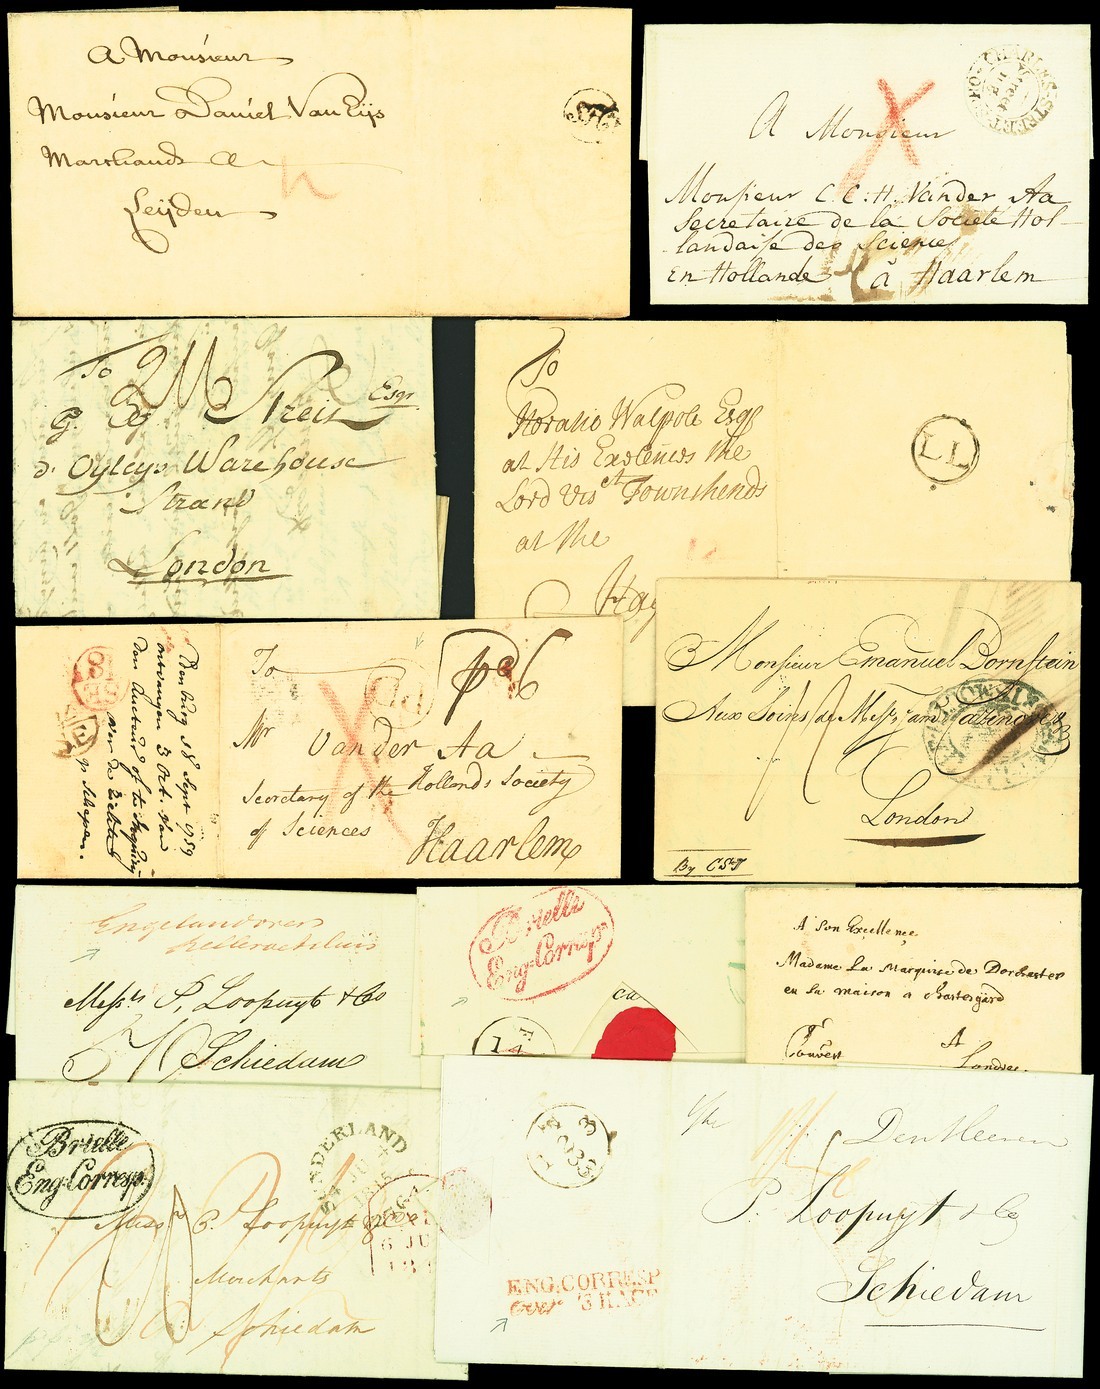 A Monsieur
Monsieur Daniel Van Eijs
Marchands A
Leijden
CHARLES STREET
A Monsieur
Monsieur C. C: H. Vander Aa
Secretaire de la Societé Hol-
landaise des Sciences
En Hollande à Haarlem
To
G. Streit Esqr
d'Oyleys Warehouse
Strand
London
To
Horatio Walpole Esqr
at His Exelences the
Lord Visct Townshends
at the
Hag
LL
To
pd 6
Mr Vander Aa
Secretary of the Hollands Society
of Sciences
Haarlem
18 Sept 1789
ontvangen 3 Oct.
Monsieur Emanuel Bornstein
Aux Soins de Messrs
London
By
Engelandover
Hellevoetsluis
Messrs P. Loopuyt & Co
Schiedam
Brielle
Eng. Corresp.
A Son Excellence,
Madame La Marquise de Dorchester
en sa maison a
Couvert
A
Londres.
Brielle
Eng. Corresp.
SUNDERLAND
Messrs P. Loopuyt & Co
Merchants
Schiedam
Den Heeren
P. Loopuyt & Co
Schiedam
ENG. CORRESP
over 'S HAGE